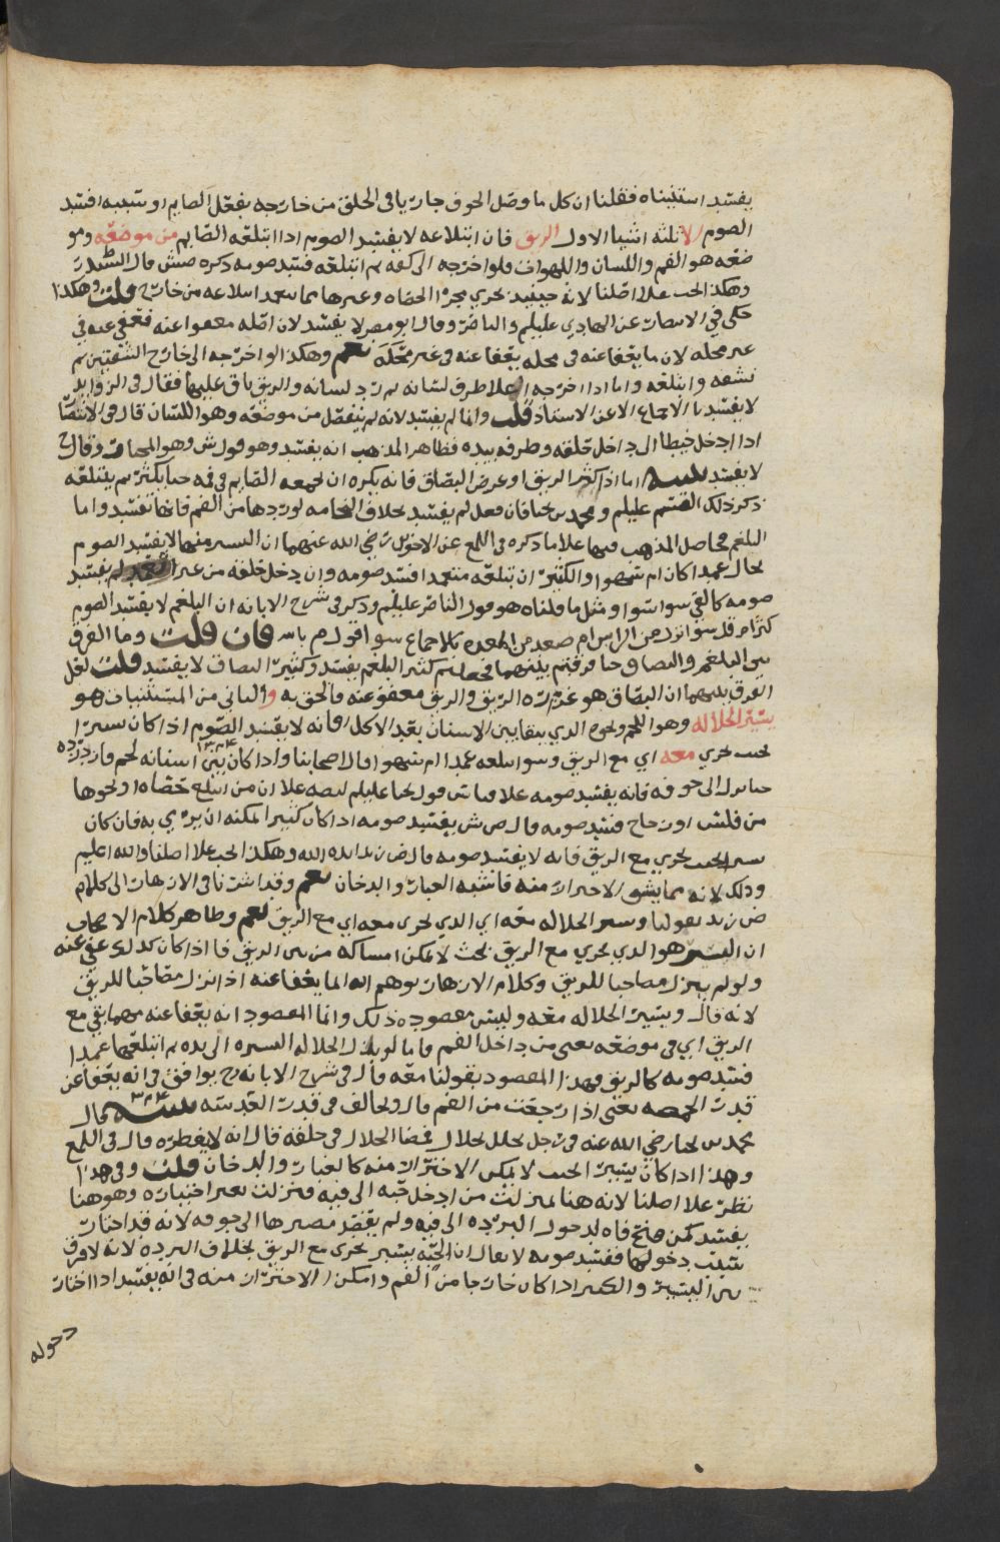 يفسد استثنيناه فقلنا ان كل ما وصل الجوف جاريا في الحلق من خارجه بفعل الصايم او سببه افسد
الصوم الا ثلثة اشيا الاول الريق فان ابتلاعه لا يفسد الصوم اذا ابتلعه الصايم من موضعه ومو
ضعه هو الفم واللسان واللهوات فلو اخرجه الى كفه ثم ابتلعه فسد صومه ذكره ص ش قال السيد
وهكذا على اصلنا لانه حينيذ يجري مجرى الحصاه وغيرها مما تعمد ابتلاعه من خارج قلت وهكذا
حكى في الانتصار عن الهادي عليلم والناصر وقال ابو مضر لا يفسد لان اصله معفوا عنه فعفي عنه في
غير محله لان ما يعفا عنه في محله يعفا عنه في غير محله نعم وهكذا لو اخرجه الى خارج الشفتين ثم
نشفه وابتلعه واما اذا اخرجه على طرف لسانه ثم رد لسانه والريق باق عليها فقال في الزوايد
لا يفسد بالاجماع الا عن الاستاذ قلت وانما لم يفسد لانه لم ينفصل من موضعه وهو اللسان قال في الانتصار
اذا ادخل خيطا الى داخل حلقه وطرفه بيده فظاهر المذهب انه يفسد وهو قول ش وهو المختار وقال ح
لا يفسد اما اذا كثر الريق او عرض البصاق فانه يكره ان يجمعه الصايم في فمه حتا يكثر ثم يبتلعه
ذكر ذلك القسم عليلم ومحمد بن يحيا فان فعل لم يفسد بخلاف النخامه لو ردها من الفم فانها تفسد واما
البلغم فحاصل المذهب فيها على ما ذكره في اللمع عن الاخوين رضي الله عنهما ان اليسير منها لا يفسد الصوم
بحال عمدا كان ام سهوا والكثير ان ابتلعه متعمدا افسد صومه وان دخل حلقه من غير تعمد لم يفسد
صومه كالقي سوا سوا ومثل ما قلناه هو قول الناصر عليلم وذكر في شرح الابانه ان البلغم لا يفسد الصوم
كثر ام قل سوا نزل من الراس ام صعد من المعده بالاجماع سوا قول م بالله فان قلت وما الفرق
بين البلغم والبصاق حتا فرقتم بينهما فجعلتم كثير البلغم يفسد وكثير البصاق لا يفسد قلت لعل
الفرق بينهما ان البصاق هو غزاره الريق والريق معفو عنه فالحق به والثاني من المستثنيات هو
يسير الخلاله وهو اللحم ونحوه الذي يبقا بين الاسنان بعد الاكل فانه لا يفسد الصوم اذا كان يسيرا
بحيث يجري معه اي مع الريق وسوا ابتلعه عمدا ام سهوا قال اصحابنا واذا كان بين اسنانه لحم فازدرده
حتا نزل الى جوفه فانه يفسد صومه على قياس قول يحيا عليلم لنصه على ان من ابتلع حصاه او نحوها
من فلس او زجاج فسد صومه قال ص ش يفسد صومه اذا كان كثيرا يمكنه ان يرمي به فان كان
يسيرا بحيث يجري مع الريق فانه لا يفسد صومه قال ض زيد ايده الله وهكذا يجب على اصلنا والله اعلم
وذلك لانه مما يشق الاحتراز منه فاشبه الغبار والدخان نعم وقد اشرنا في الازهار الى كلام
ض زيد بقولنا ويسير الخلاله معه اي الذي يجري معه اي مع الريق نعم وظاهر كلام الاصحاب
ان اليسير هو الذي يجري مع الريق بحيث لا يمكن امساكه من بين الريق فاذا كان كذلك عفي عنه
ولو لم ينزل مصاحبا للريق وكلام الازهار يوهم انه انما يعفا عنه اذا نزل مصاحبا للريق
لانه قال ويسير الخلاله معه وليس مقصوده ذلك وانما المقصود انه يعفا عنه مهما بقي مع
الريق اي في موضعه يعني من داخل الفم فاما لو اخذ الخلاله اليسيره الى يده ثم ابتلعها عمدا
فسد صومه كالريق فهذا المقصود بقولنا معه قال في شرح الابانه وح يوافق في انه يعفا عن
قدر الحمصه يعني اذا رجعت من الفم قال ويخالف في قدر العدسه تنبيه قال
محمد بن يحيا رضي الله عنه في رجل تخلل بخلال فمضا الخلال في حلقه قال انه لا يفطره قال في اللمع
وهذا اذا كان يسيرا بحيث لا يمكن الاحتراز منه كالغبار والدخان قلت وفي هذا
نظر على اصلنا لانه هنا بمنزلت من ادخل حبه الى فيه فنزلت بغير اختياره وهو هنا
يفسد كمن فتح فاه لدخول البرده الى فيه ولم يقصد مصيرها الى جوفه لانه قد اختار
سبب دخولها ففسد صومه لا يقال ان الحبه يسير يجري مع الريق بخلاف البرده لانه لا فرق
بين اليسير والكثير اذا كان خارجا من الفم وامكن الاحتراز منه في انه يفسد اذا اختار
دخوله